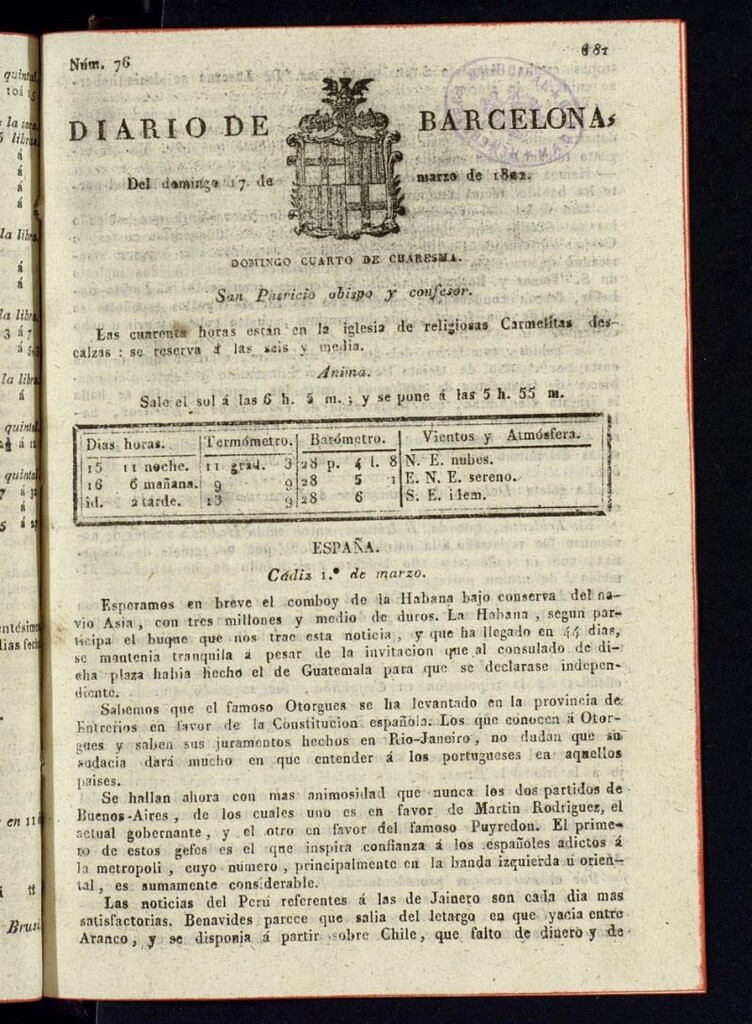 quintal
la libra
la libra
la libra
quintal
quintal
en 11
Núm. 76
681
DIARIO DE BARCELONA,
Del domingo 17 de marzo de 1822.
DOMINGO CUARTO DE CUARESMA.
San Patricio obispo y confesor.
Las cuarenta horas están en la iglesia de religiosas Carmelitas des-
calzas : se reserva á las seis y media.
Anima.
Sale el sol á las 6 h. 5 m. ; y se pone á las 5 h. 55 m.
Dias horas. Termómetro. Barómetro. Vientos y Atmósfera.
15 11 noche. 11 grad. 3 28 p. 4 l. 8 N. E. nubes.
16 6 mañana. 9 9 28 5 1 E. N. E. sereno.
id. 2 tarde. 13 9 28 6 S. E. idem.
ESPAÑA.
Cádiz 1.º de marzo.
Esperamos en breve el comboy de la Habana bajo conserva del na-
vio Asia, con tres millones y medio de duros. La Habana , segun par-
ticipa el buque que nos trae esta noticia , y que ha llegado en 44 dias,
se mantenia tranquila á pesar de la invitacion que al consulado de di-
cha plaza habia hecho el de Guatemala para que se declarase indepen-
diente.
Sabemos que el famoso Otorgues se ha levantado en la provincia de
Entrerios en favor de la Constitucion española. Los que conocen á Otor-
gues y saben sus juramentos hechos en Rio-Janeiro, no dudan que su
audacia dará mucho en que entender á los portugueses en aquellos
paises.
Se hallan ahora con mas animosidad que nunca los dos partidos de
Buenos-Aires , de los cuales uno es en favor de Martin Rodriguez, el
actual gobernante, y el otro en favor del famoso Puyredon. El prime-
ro de estos gefes es el que inspira confianza á los españoles adictos á
la metropoli , cuyo número , principalmente en la banda izquierda ú orien-
tal , es sumamente considerable.
Las noticias del Perú referentes á las de Jainero son cada dia mas
satisfactorias. Benavides parece que salia del letargo en que yacia entre
Aranco, y se disponia á partir sobre Chile, que falto de dinero y de